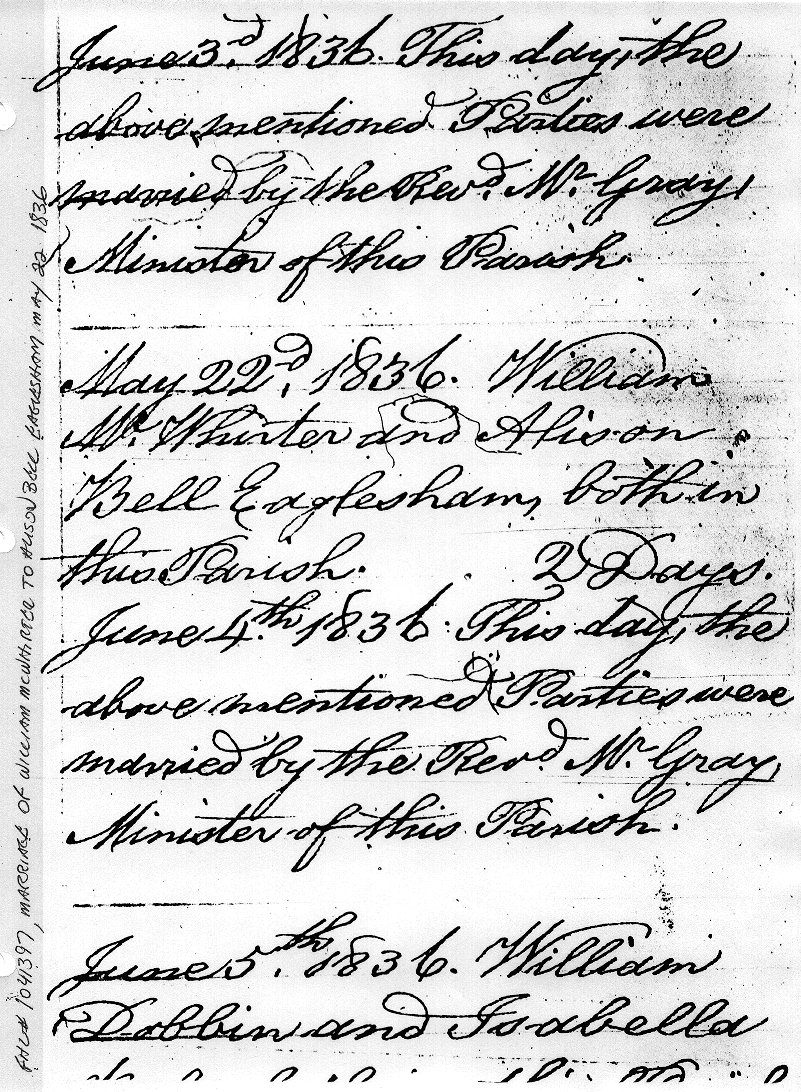 June 3d. 1836. This day, the
above mentioned Parties were
married by the Revd. Mr. Gray,
Minister of this Parish.
May 22d. 1836. William
Mc.Whirter and Alison
Bell Eaglesham, both in
this Parish. 2 Days.
June 4th. 1836. This day, the
above mentioned Parties were
married by the Revd. Mr. Gray,
Minister of this Parish.
June 5th. 1836. William
Dobbin and Isabella
FHL# 1041397, MARRIAGE OF WILLIAM MCWHIRTER TO ALISON BELL EAGLESHAM MAY 22 1836